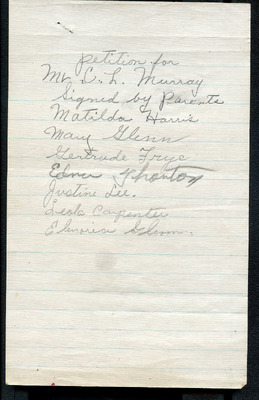 petition for
Mr. L. L. Murray
Signed by Parents
Matilda Harris
Mary Glenn
Gertrude Frye
Edna Thornton
Justine Lee.
Leola Carpenter
Glenn.